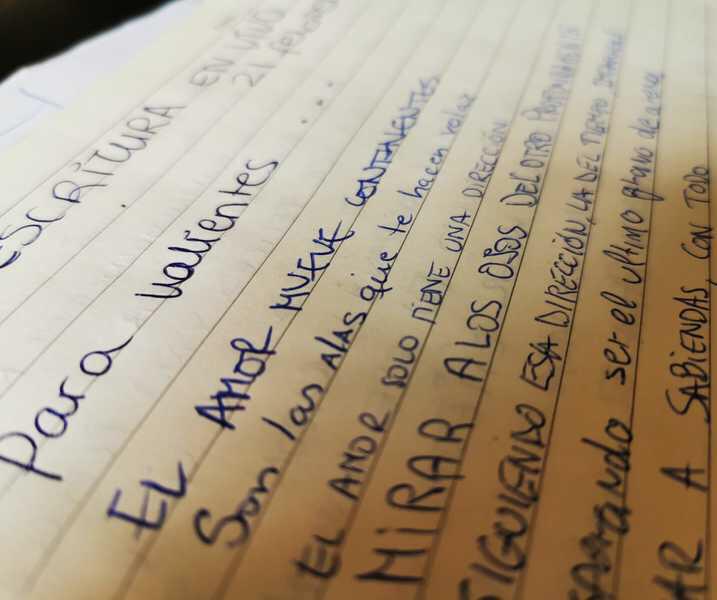 ESCRITURA EN VIVO
21
Para valientes ...
EL AMOR MUEVE CONTINENTES
Son las alas que te hacen volar
EL AMOR SOLO TIENE UNA DIRECCIÓN
MIRAR A LOS OJOS DEL OTRO
SIGUIENDO ESA DIRECCIÓN, LA DEL
ser el ultimo grano de
A SABIENDAS, CON TODO